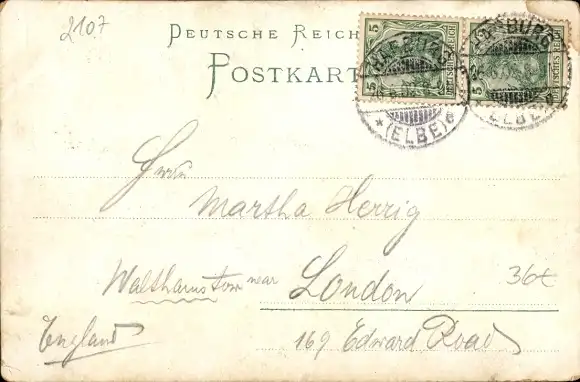 2107
DEUTSCHE REICH
POSTKART
5 DEUTSCHES REICH 5 DEUTSCHES REICH
HARBURG
* (ELBE) e
HARBURG
ELBE
Frau
Martha Herrig
Walthamstow near London
36t
England
169 Edward Road